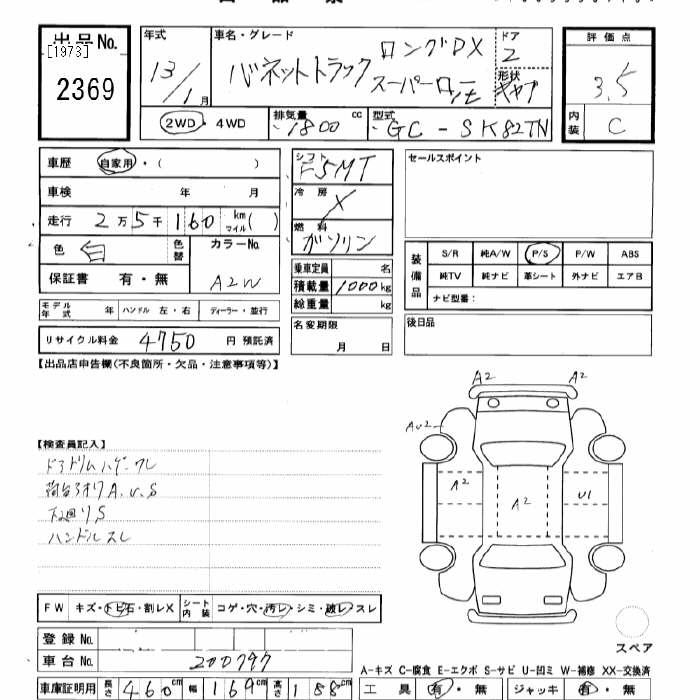 出品No.
[1973]
2369
年式
13/1月
車名・グレード
ロングDX
バネットトラック スーパーロー
ドア
2
形状
キャブ
評価点
3.5
内装
C
2WD・4WD
排気量 1800 cc
型式 GC-SK82TN
車歴 自家用・( )
車検 年 月
走行 2万5千160 km マイル( )
色 白 色替
カラーNo.
A2W
保証書 有・無
モデル年式 年 ハンドル 左・右 ディーラー・並行
リサイクル料金 4750 円 預託済
シフト
F5MT
冷房
X
燃料
ガソリン
乗車定員 名
積載量 1000kg
総重量 kg
名変期限
月 日
セールスポイント
装備品
S/R 純A/W P/S P/W ABS
純TV 純ナビ 革シート 外ナビ エアB
ナビ型番:
後日品
【出品店申告欄(不良箇所・欠品・注意事項等)】
【検査員記入】
荷台アオリA.U.S
下廻りS
ハンドルスレ
A2 A2
AU2
A2 A2 U1
FW キズ・トビ石・割レX シート内装 コゲ・穴・汚レ・シミ・破レ・スレ
登録No.
車台No. 200797
スペア
A-キズ C-腐食 E-エクボ S-サビ U-凹ミ W-補修 XX-交換済
車庫証明用 長さ 460cm 幅 169cm 高さ 188cm
工具 有・無 ジャッキ 有・無